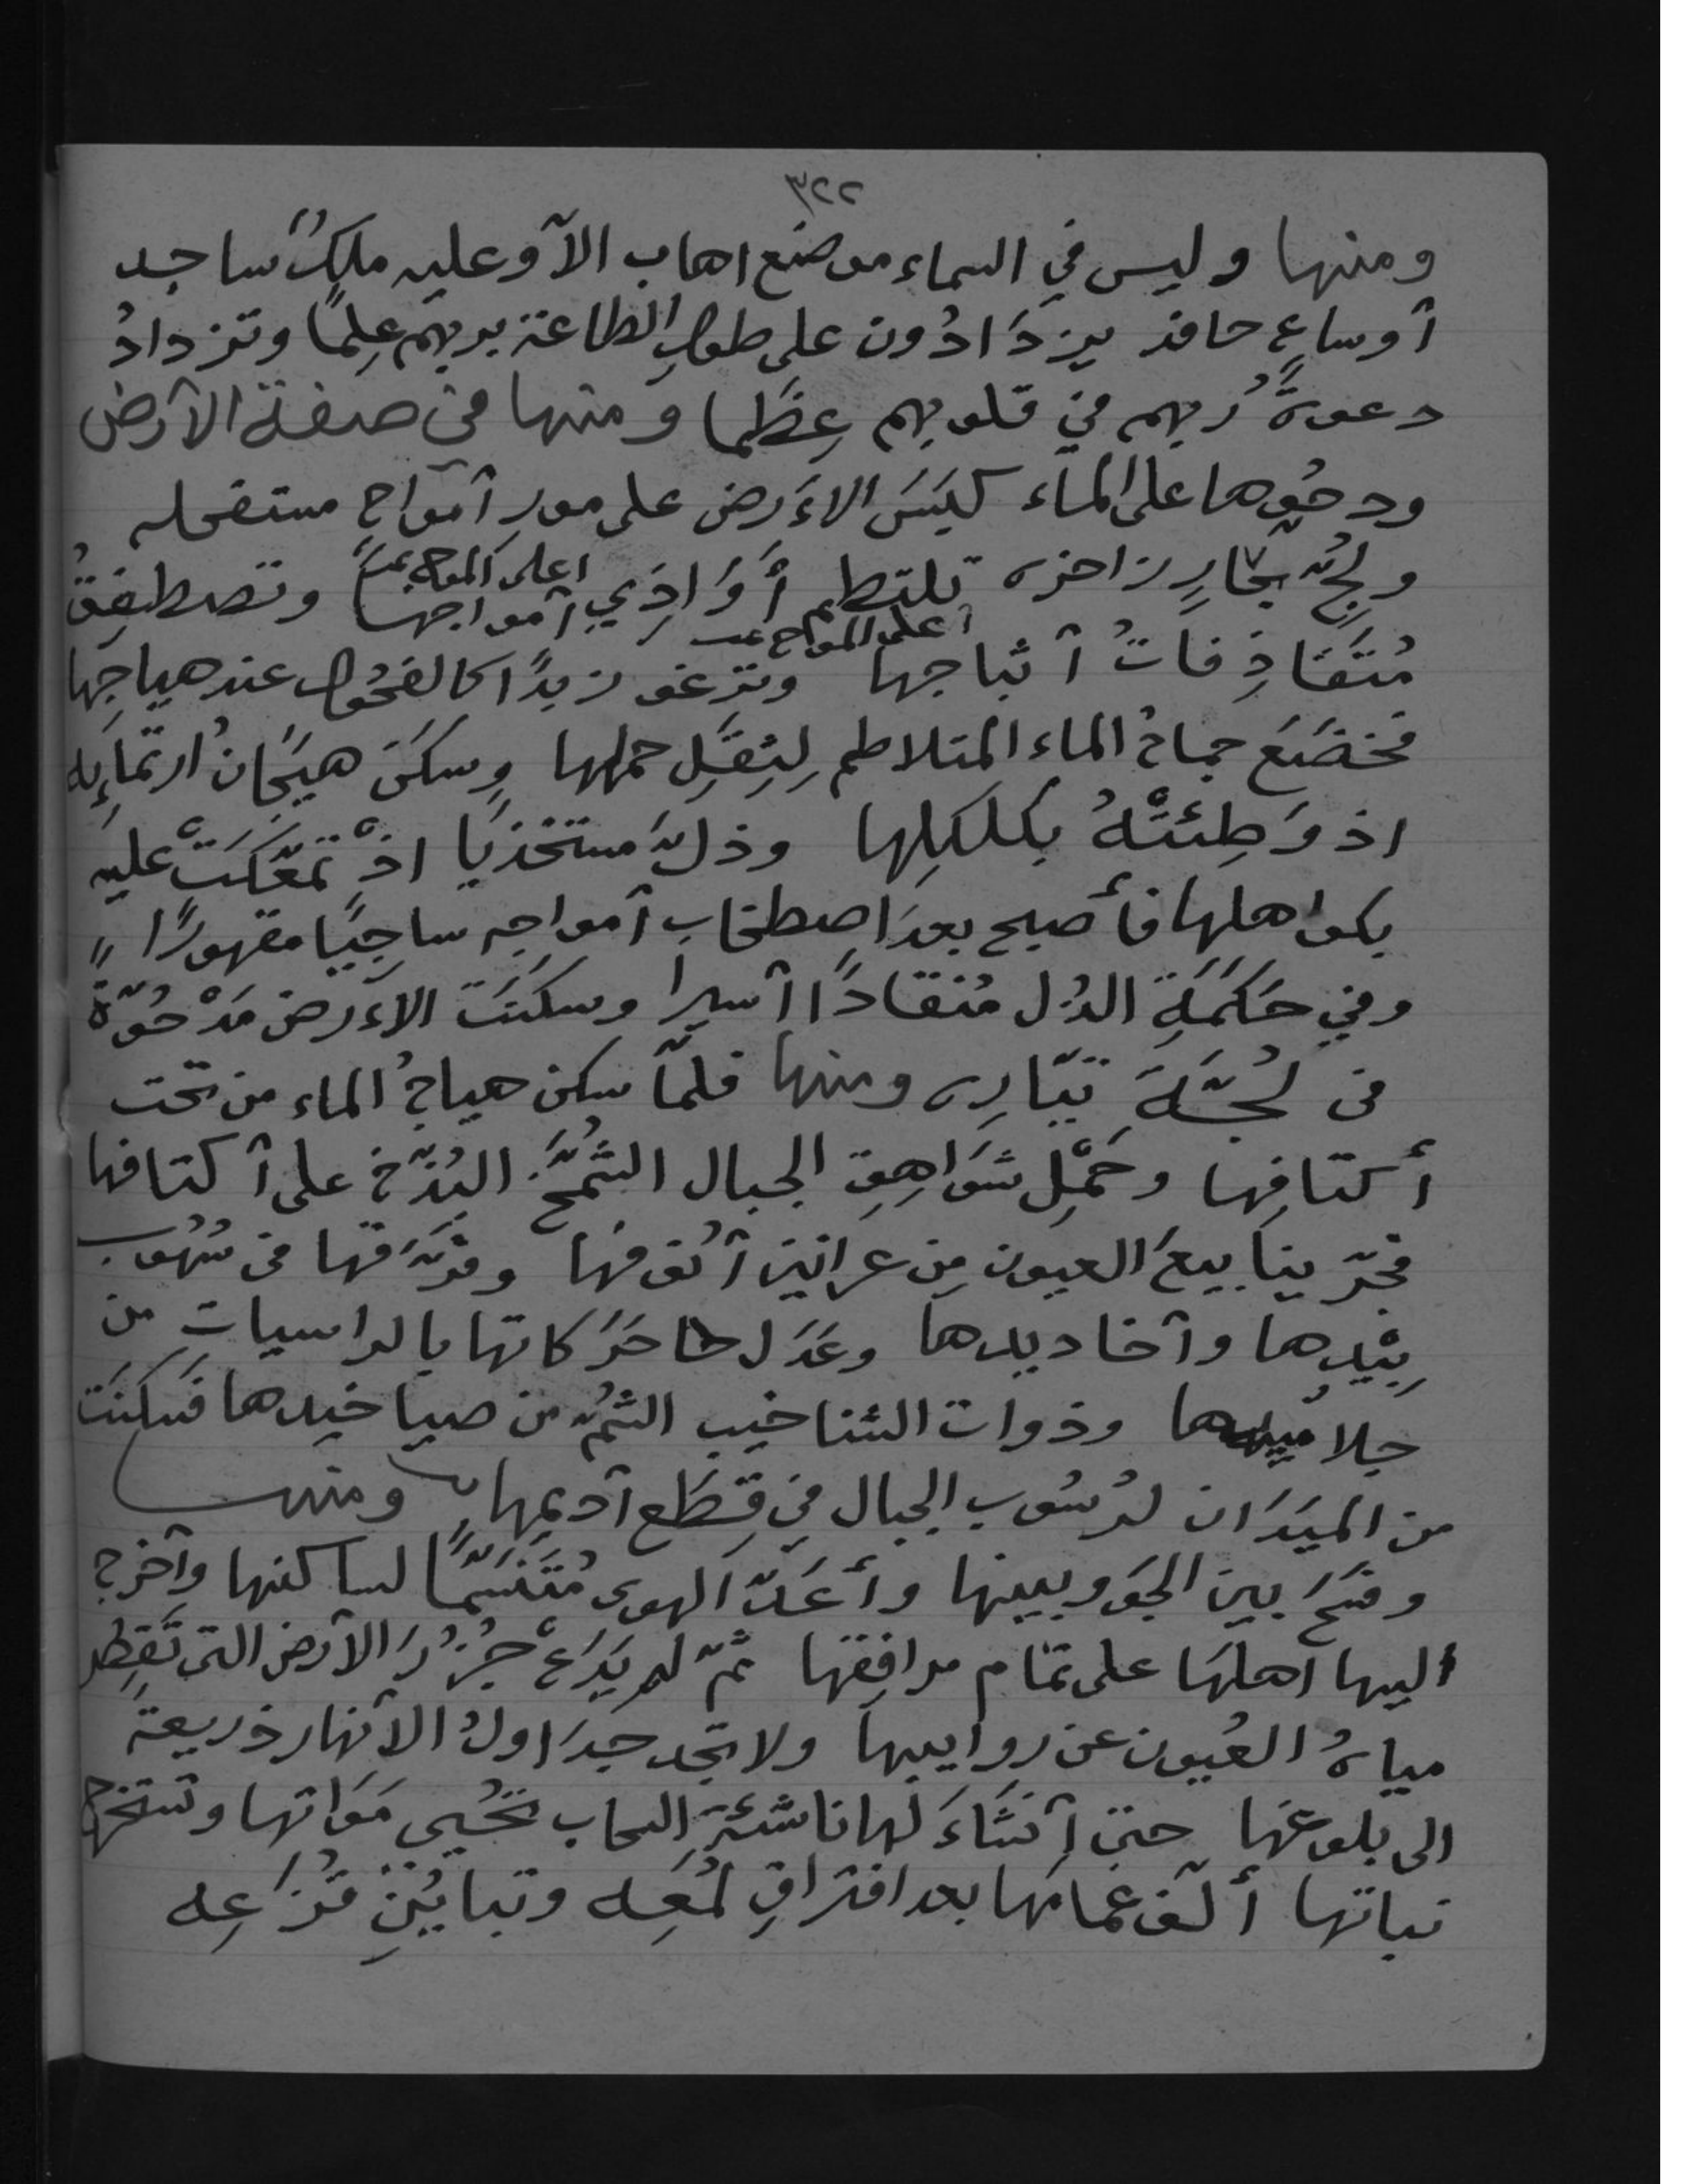 ٣٢٢
ومنها وليس في السماء موضع اهاب الآ وعليه ملكٌ ساجد
آوساعٍ حافد يزدَادُون على طولِ الطاعة بربهم عِلمًا وتزدادُ
دعوةُ ربهم في قلوبهم عِظَما ومنها في صفة الآرض
ودحُوها على الماء كَبَسَ الاءَرضَ على مورِ آمواجٍ مستفحله
ولجُّ بحارٍ زاخره تلتطم أَوَاذِيِ آمواجها وتصطفِقُ
اعلى الموج
مُتَقَاذِفاتُ آثباجها وترغو زبدًا كالفحُول عند هياجِها
اعلى الموج
فخضَعَ جماحُ الماء المتلاطم لِثِقَلِ حملها وسكَنَ هيَجَانُ ارتمَاِئِه
اذ وَطِئتْهُ بكلكِلِها وذلَّ مستخذيَا اذْ تمعّكَتْ عليه
بكواهلها فأصبح بعدَ اصطخابِ آمواجه ساجيًا مقهورًا
وفي حَكَمَةِ الذُل مُنقادًا آسيرا وسكنَت الاءَرضُ مَدْحُوّةً
في لُجَّةَ تيّارِه ومنها فلمّا سكن هياجُ الماء من تحت
أكتافِها وحَمْلِ شوَاهِقِ الجبال الشُمَّخِ البُذّخ على آكتافها
فجّر ينابيعَ العيون مِن عرانين آنُوفها وفرّقها في سُهُوب
بِيْدِها وآخاديدها وعَدَل حرَكاتها بالراسيات من
جلاميدها وذوات الشناخيب الشُمّ من صياخيدها فسكنَت
من الميَدَان لرُسُوب الجبال في قِطَع آديمها ومنها
وفسَح بين الجَو وبينها وأعَدّ الهوى مُتَنَسّمًا لساكنها وآخرج
اليها آهلها على تمام مرافِقها ثمّ لم يَدَعْ جُرُزَ الآرض التي تَقصُر
مياهُ العُيون عن روابيها ولا تجد جدَاولُ الآنهار ذريعةً
الى بلوغها حتى آنشَاءَ لها ناشئةَ السحاب تُحيي مَوَاتها وتستخرج
نباتها ألّف غمامها بعد افتراقِ لُمَعِه وتبايُنِ قزَعِه